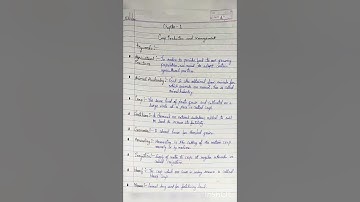 Chapter - 1
Crop Production and Management
Keywords :-
Agricultural :- In order to provide food to our growing
Practices population we need to adopt certain
agricultural practices
Animal Husbandry :- Food is also obtained from animals for
which animals are reared. This is called
animal husbandry.
Crop :- The same kind of plants grown and cultivated on a
large scale at a place is called crop.
Fertilizer :- A chemical or natural substance added to soil
or land to increase its fertility
Granaries :- A store house for threshed grain.
Harvesting :- Harvesting is the cutting of the mature crop
manually or by machines
Irrigation :- Supply of water to crops at regular intervals is
called irrigation.
Kharif :- The crops which are sown in rainy season is called
Kharif crops
Manure :- Animal dung used for fertilizing land.